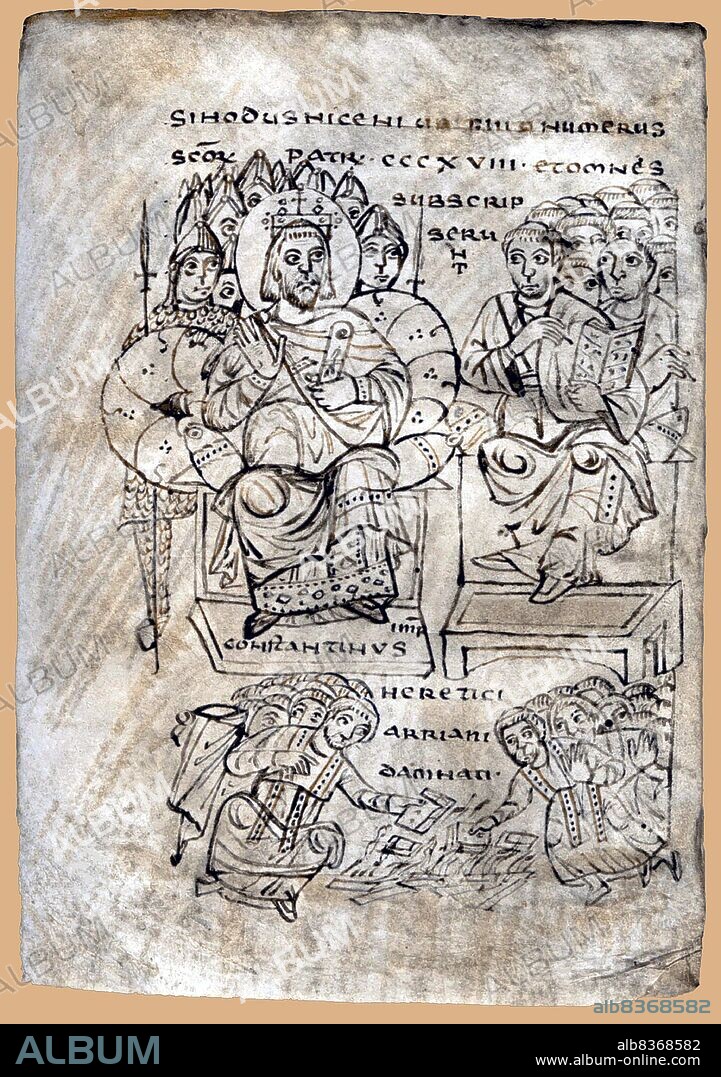 SINODUS NICENI UBI NUMERUS
SCŌR PATR · CCCXVIII · ET OMNES
SUBSCRIP
SERU
NT
IMP
CONSTANTINUS
HERETICI
ARRIANI
DAMNATI ·
alb8368582
ALBUM
alb8368582
www.album-online.com